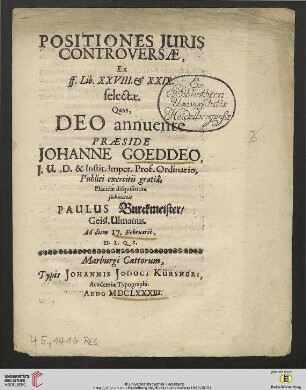 POSITIONES JURIS
CONTROVERSÆ,
Ex
ff. Lib. XXVIII. & XXIX.
selectæ.
Quas,
DEO annuente
PRÆSIDE
JOHANNE GOEDDEO,
J. U. D. & Instit. Imper. Prof. Ordinario,
Publici exercitii gratiâ,
Placidæ disquisitioni
submittit
PAULUS Burckmeister/
Geisl. Ulmanus.
Ad diem 17. Februarii,
H. L. Q. S.
Marburgi Cattorum,
Typis JOHANNIS JODOCI KÜRSNERI,
Academiæ Typographi.
ANNO MDCLXXXIII.
Ex
Bibliotheca
Universitatis
Heidelbergensis
45, 1416 RES
UNIVERSITÄTS-
BIBLIOTHEK
HEIDELBERG
© Universitätsbibliothek Heidelberg